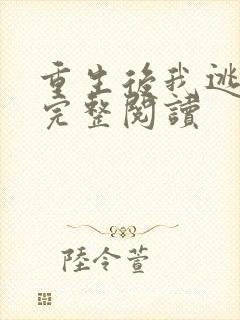 重生後我逃
完整閱讀
陸令萱